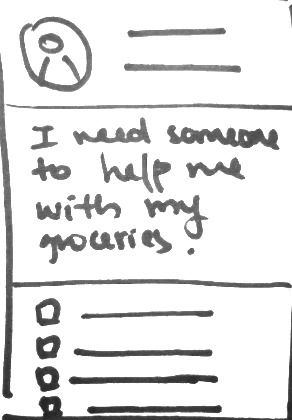 I need someone
to help me
with my
groceries.